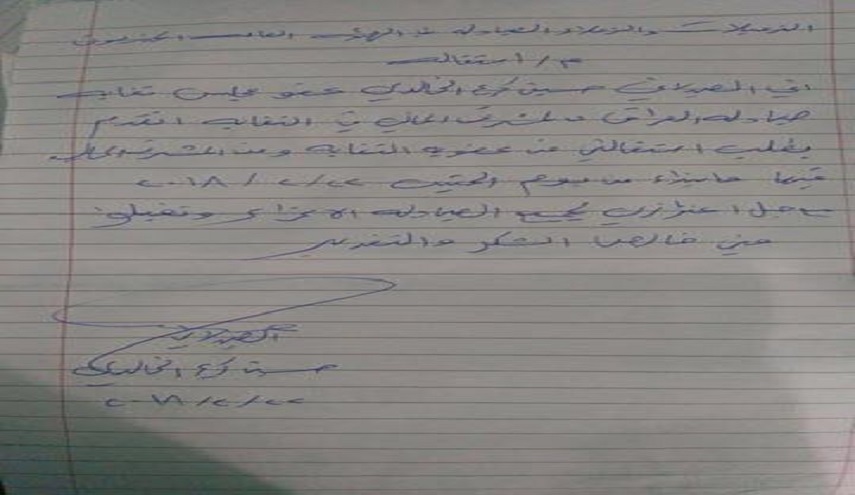 الزميلات والزملاء الصيادلة في الهيئة العامة المحترمون
م/ استقالة
اني الصيدلاني حسين كريم الخالدي عضو مجلس نقابة
صيادلة العراق والمشرف المالي في النقابة اتقدم
بطلب استقالتي من عضوية النقابة ومن المشرف المالي
فيها ابتداء من يوم الخميس ٢٠١٨/٢/٢٢
مع اعتزازي بجميع الصيادلة الاعزاء وتقبلوا
مني خالص الشكر والتقدير
الصيدلاني
حسين كريم الخالدي
٢٠١٨/٢/٢٢